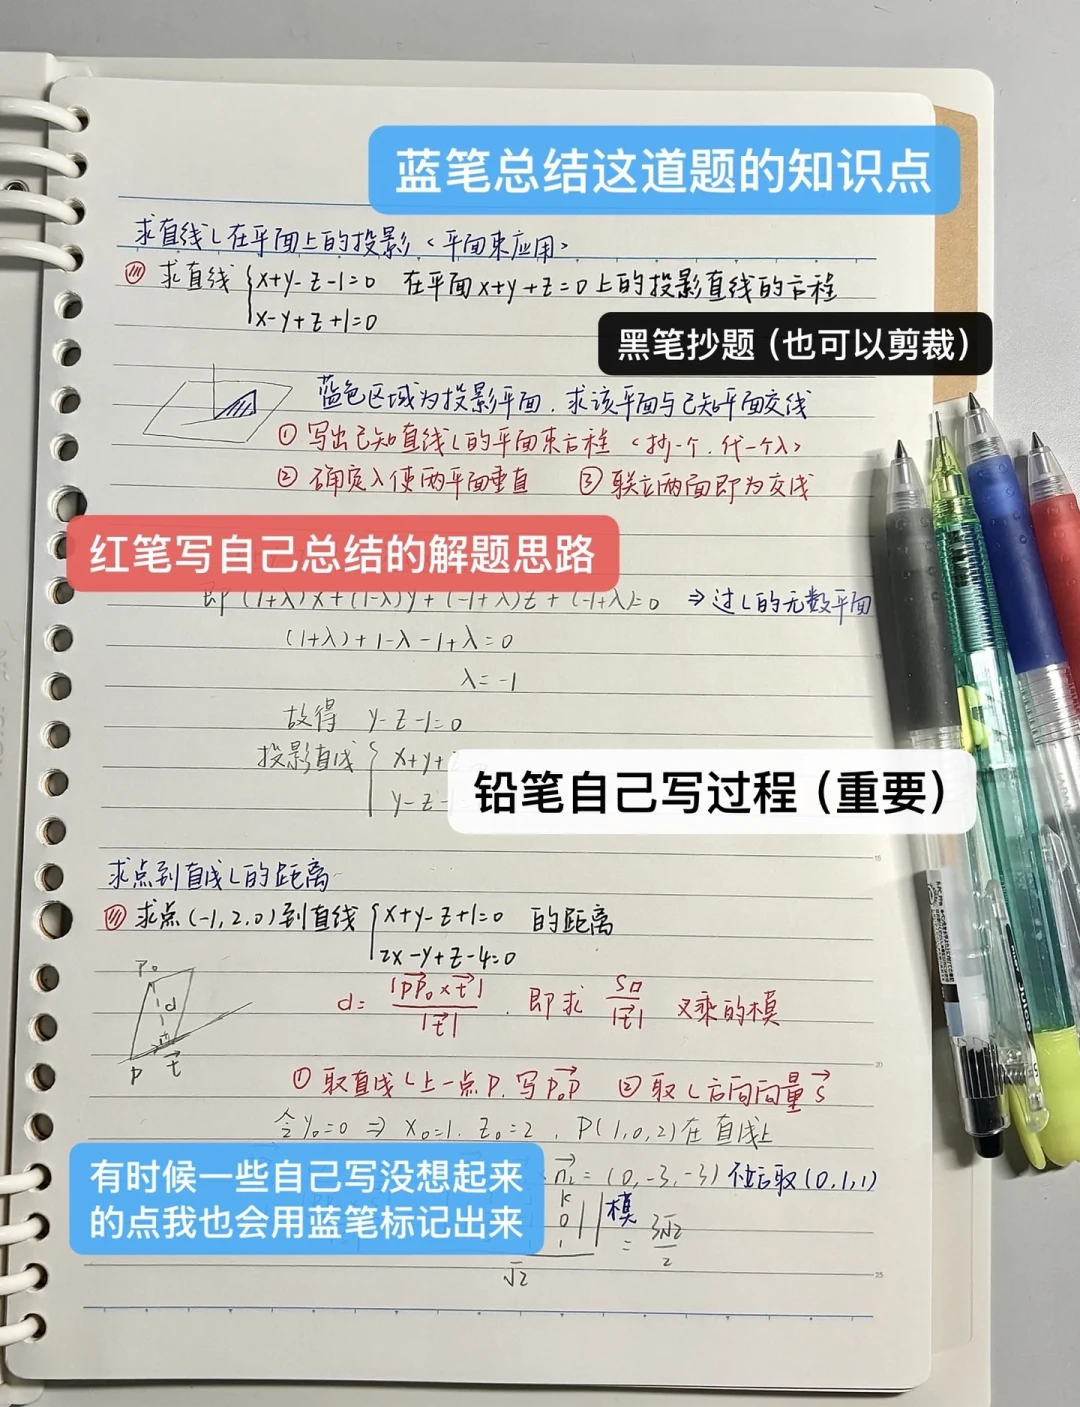 蓝笔总结这道题的知识点
求直线L在平面上的投影<平面束应用>
求直线 { x+y-z-1=0 在平面x+y+z=0上的投影直线的方程
x-y+z+1=0
黑笔抄题（也可以剪裁）
蓝色区域为投影平面.求该平面与已知平面交线
① 写出已知直线L的平面束方程<抄一个.代一个λ>
② 确定λ使两平面垂直 ③ 联立两面即为交线
红笔写自己总结的解题思路
即(1+λ)x+(1-λ)y+(-1+λ)z+(-1+λ)=0 ⇒过L的无数平面
(1+λ)+1-λ-1+λ=0
λ=-1
故得 y-z-1=0
投影直线 { x+y+
y-z-
铅笔自己写过程（重要）
求点到直线L的距离
求点(-1,2,0)到直线 { x+y-z+1=0 的距离
2x-y+z-4=0
P₀
d
P t
d= |PP₀×t| / |t| . 即求 S□ / |t| 叉乘的模
① 取直线L上一点P.写P₀P ② 取L方向向量S
令y₀=0 ⇒ x₀=1. z₀=2 . P(1,0,2)在直线上
有时候一些自己写没想起来
的点我也会用蓝笔标记出来
n₂=(0,-3,-3) 不妨取(0,1,1)
k
0 模 = 3√2 / 2
1
√2
15
20
25